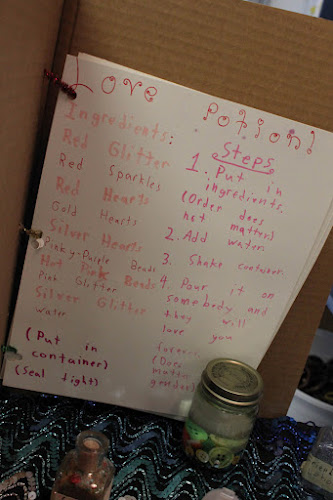 Love Potion!
Ingredients:
Red Glitter
Red Sparkles
Red Hearts
Gold Hearts
Silver Hearts
Pinky-Purple Beads
Hot Pink Beads
Pink Glitter
Silver Glitter
water
(Put in
container)
(Seal tight)
Steps
1. Put in
ingredients.
(Order does
not matter)
2. Add water
3. Shake container.
4. Pour it on
somebody and
they will
love you
forever.
(Does
matter
gender)